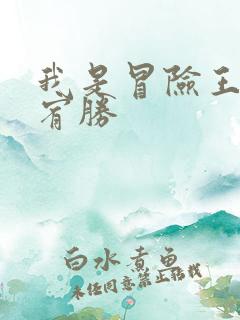 我是冒險王
宥勝
白水煮魚
未经同意禁止转载